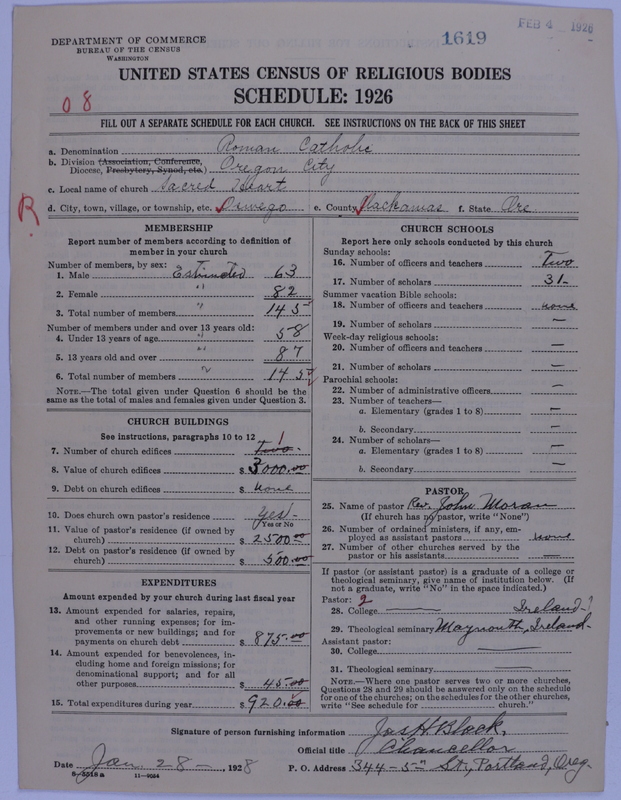 FEB 4 1926
1619
DEPARTMENT OF COMMERCE
BUREAU OF THE CENSUS
WASHINGTON
UNITED STATES CENSUS OF RELIGIOUS BODIES
SCHEDULE: 1926
0 8
FILL OUT A SEPARATE SCHEDULE FOR EACH CHURCH. SEE INSTRUCTIONS ON THE BACK OF THIS SHEET
a. Denomination Roman Catholic
b. Division (Association, Conference, Diocese, Presbytery, Synod, etc.) Oregon City
c. Local name of church Sacred Heart
R
d. City, town, village, or township, etc. Oswego e. County Clackamas f. State Ore
MEMBERSHIP
Report number of members according to definition of
member in your church
Number of members, by sex:
1. Male Estimated 63
2. Female " 82
3. Total number of members " 145
Number of members under and over 13 years old:
4. Under 13 years of age " 58
5. 13 years old and over " 87
6. Total number of members " 145
NOTE.—The total given under Question 6 should be
same as the total of males and females given under Question 3.
CHURCH BUILDINGS
See instructions, paragraphs 10 to 12
7. Number of church edifices Two 1
8. Value of church edifices $ 3000.00
9. Debt on church edifices $ None
10. Does church own pastor's residence Yes
Yes or No
11. Value of pastor's residence (if owned by
church) $ 2500.00
12. Debt on pastor's residence (if owned by
church) $ 500.00
EXPENDITURES
Amount expended by your church during last fiscal year
13. Amount expended for salaries, repairs,
and other running expenses; for im-
provements or new buildings; and for
payments on church debt $ 875.00
14. Amount expended for benevolences, in-
cluding home and foreign missions; for
denominational support; and for all
other purposes $ 45.00
15. Total expenditures during year $ 920.00
CHURCH SCHOOLS
Report here only schools conducted by this church
Sunday schools:
16. Number of officers and teachers Two
17. Number of scholars 31-
Summer vacation Bible schools:
18. Number of officers and teachers none
19. Number of scholars —
Week-day religious schools:
20. Number of officers and teachers —
21. Number of scholars —
Parochial schools:
22. Number of administrative officers —
23. Number of teachers—
a. Elementary (grades 1 to 8) —
b. Secondary —
24. Number of scholars—
a. Elementary (grades 1 to 8) —
b. Secondary —
PASTOR
25. Name of pastor Rev. John Moran
(If church has no pastor, write "None")
26. Number of ordained ministers, if any, em-
ployed as assistant pastors none
27. Number of other churches served by the
pastor or his assistants —
If pastor (or assistant pastor) is a graduate of a college or
theological seminary, give name of institution below. (If
not a graduate, write "No" in the space indicated.)
Pastor: 2
28. College — Ireland?
29. Theological seminary Maynouth, Ireland
Assistant pastor:
30. College —
31. Theological seminary —
NOTE.—Where one pastor serves two or more churches,
Questions 28 and 29 should be answered only on the schedule
for one of the churches; on the schedules for the other churches,
write "See schedule for church."
Signature of person furnishing information Jas H Black,
Official title Chancellor
Date Jan 28-, 1928 P. O. Address 344-5th St., Portland, Oreg.
8-5518 a 11—9034